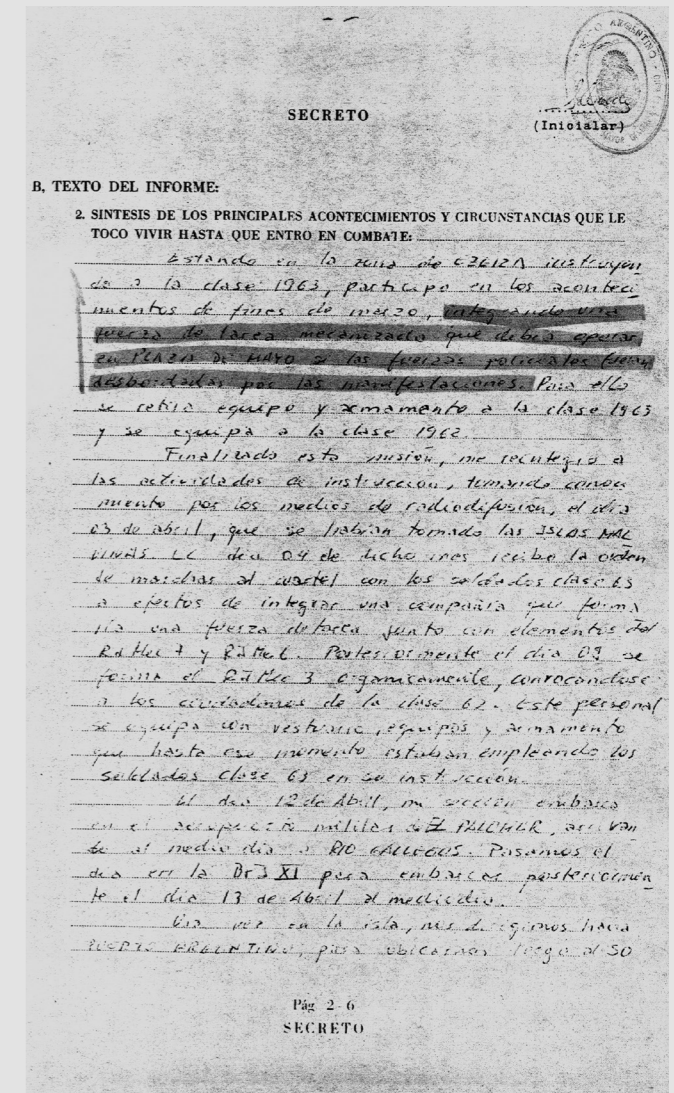 SECRETO
(Inicialar)
B, TEXTO DEL INFORME:
2. SINTESIS DE LOS PRINCIPALES ACONTECIMIENTOS Y CIRCUNSTANCIAS QUE LE
TOCO VIVIR HASTA QUE ENTRO EN COMBATE:
Estando en la zona de EZEIZA instruyen
do a la clase 1963, participo en los aconteci
mientos de fines de marzo, integrando una
fuerza de tarea mecanizada que debia operar
en PLAZA DE MAYO si las fuerzas policiales fueran
desbordadas por las manifestaciones. Para ello
se retira equipo y armamento a la clase 1963
y se equipa a la clase 1962.
Finalizado esta misión, me reintegro a
las actividades de instrucción, tomando conoci
miento por los medios de radiodifusión, el día
03 de abril, que se habían tomado las ISLAS MAL
VINAS. El día 04 de dicho mes recibo la orden
de marchar al cuartel con los soldados clase 63
a efectos de integrar una compañía que forma
ría una fuerza de tarea junto con elementos del
RI Mec 7 y. Posteriormente el día 09 se
forma el RI Mec 3 organicamente, convocandose
a los ciudadanos de la clase 62. Este personal
se equipa con vestuario, equipos y armamento
que hasta ese momento estaban empleando los
soldados clase 63 en su instrucción.
El día 12 de Abril, mi sección embarca
en el aeropuerto militar de EL PALOMAR, arrivan
do al medio día a RIO GALLEGOS. Pasamos el
día en la Br I XI para embarcar posteriormen
te el día 13 de Abril al mediodía.
Una vez en la isla, nos dirigimos hacia
PUERTO ARGENTINO, para ubicarnos luego al SO
Pág 2-6
SECRETO